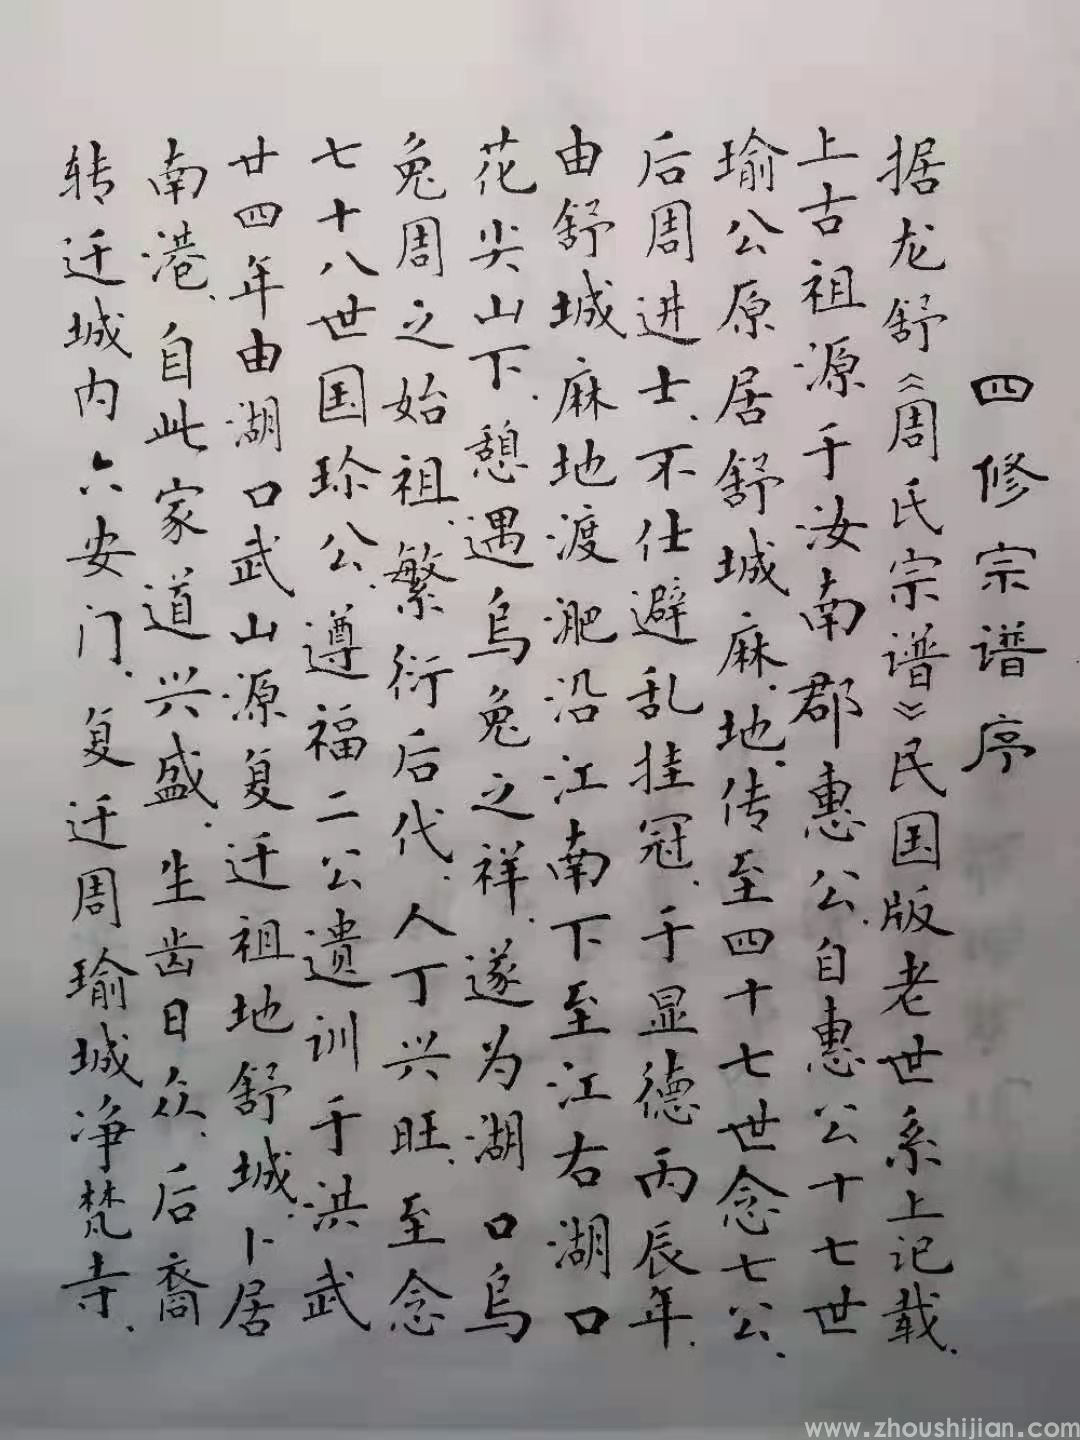 四修宗谱序
据龙舒《周氏宗谱》民国版老世系上记载.
上古祖源于汝南郡惠公.自惠公十七世
瑜公原居舒城麻.地.传至四十七世念七公.
后周进士.不仕避乱挂冠.于显德丙辰年.
由舒城麻地渡淝沿江南下至江右湖口
花尖山下.憩遇乌兔之祥.遂为湖口乌
兔周之始祖.繁衍后代.人丁兴旺.至念
七十八世国珍公.遵福二公遗训于洪武
廿四年由湖口武山源复迁祖地舒城.卜居
南港.自此家道兴盛.生齿日众.后裔
转迁城内六安门.复迁周瑜城净梵寺.
www.zhoushijian.com